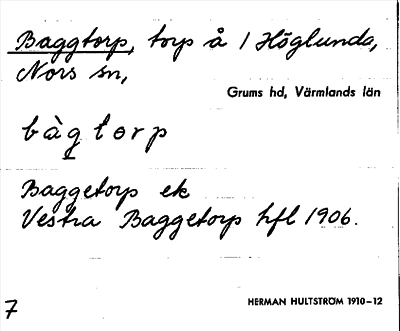 Baggtorp, torp å 1 Höglunda,
Nors sn,
Grums hd, Värmlands län
bàg torp
Baggetorp ek
Vestra Baggetorp hfl 1906.
7
HERMAN HULTSTRÖM 1910–12